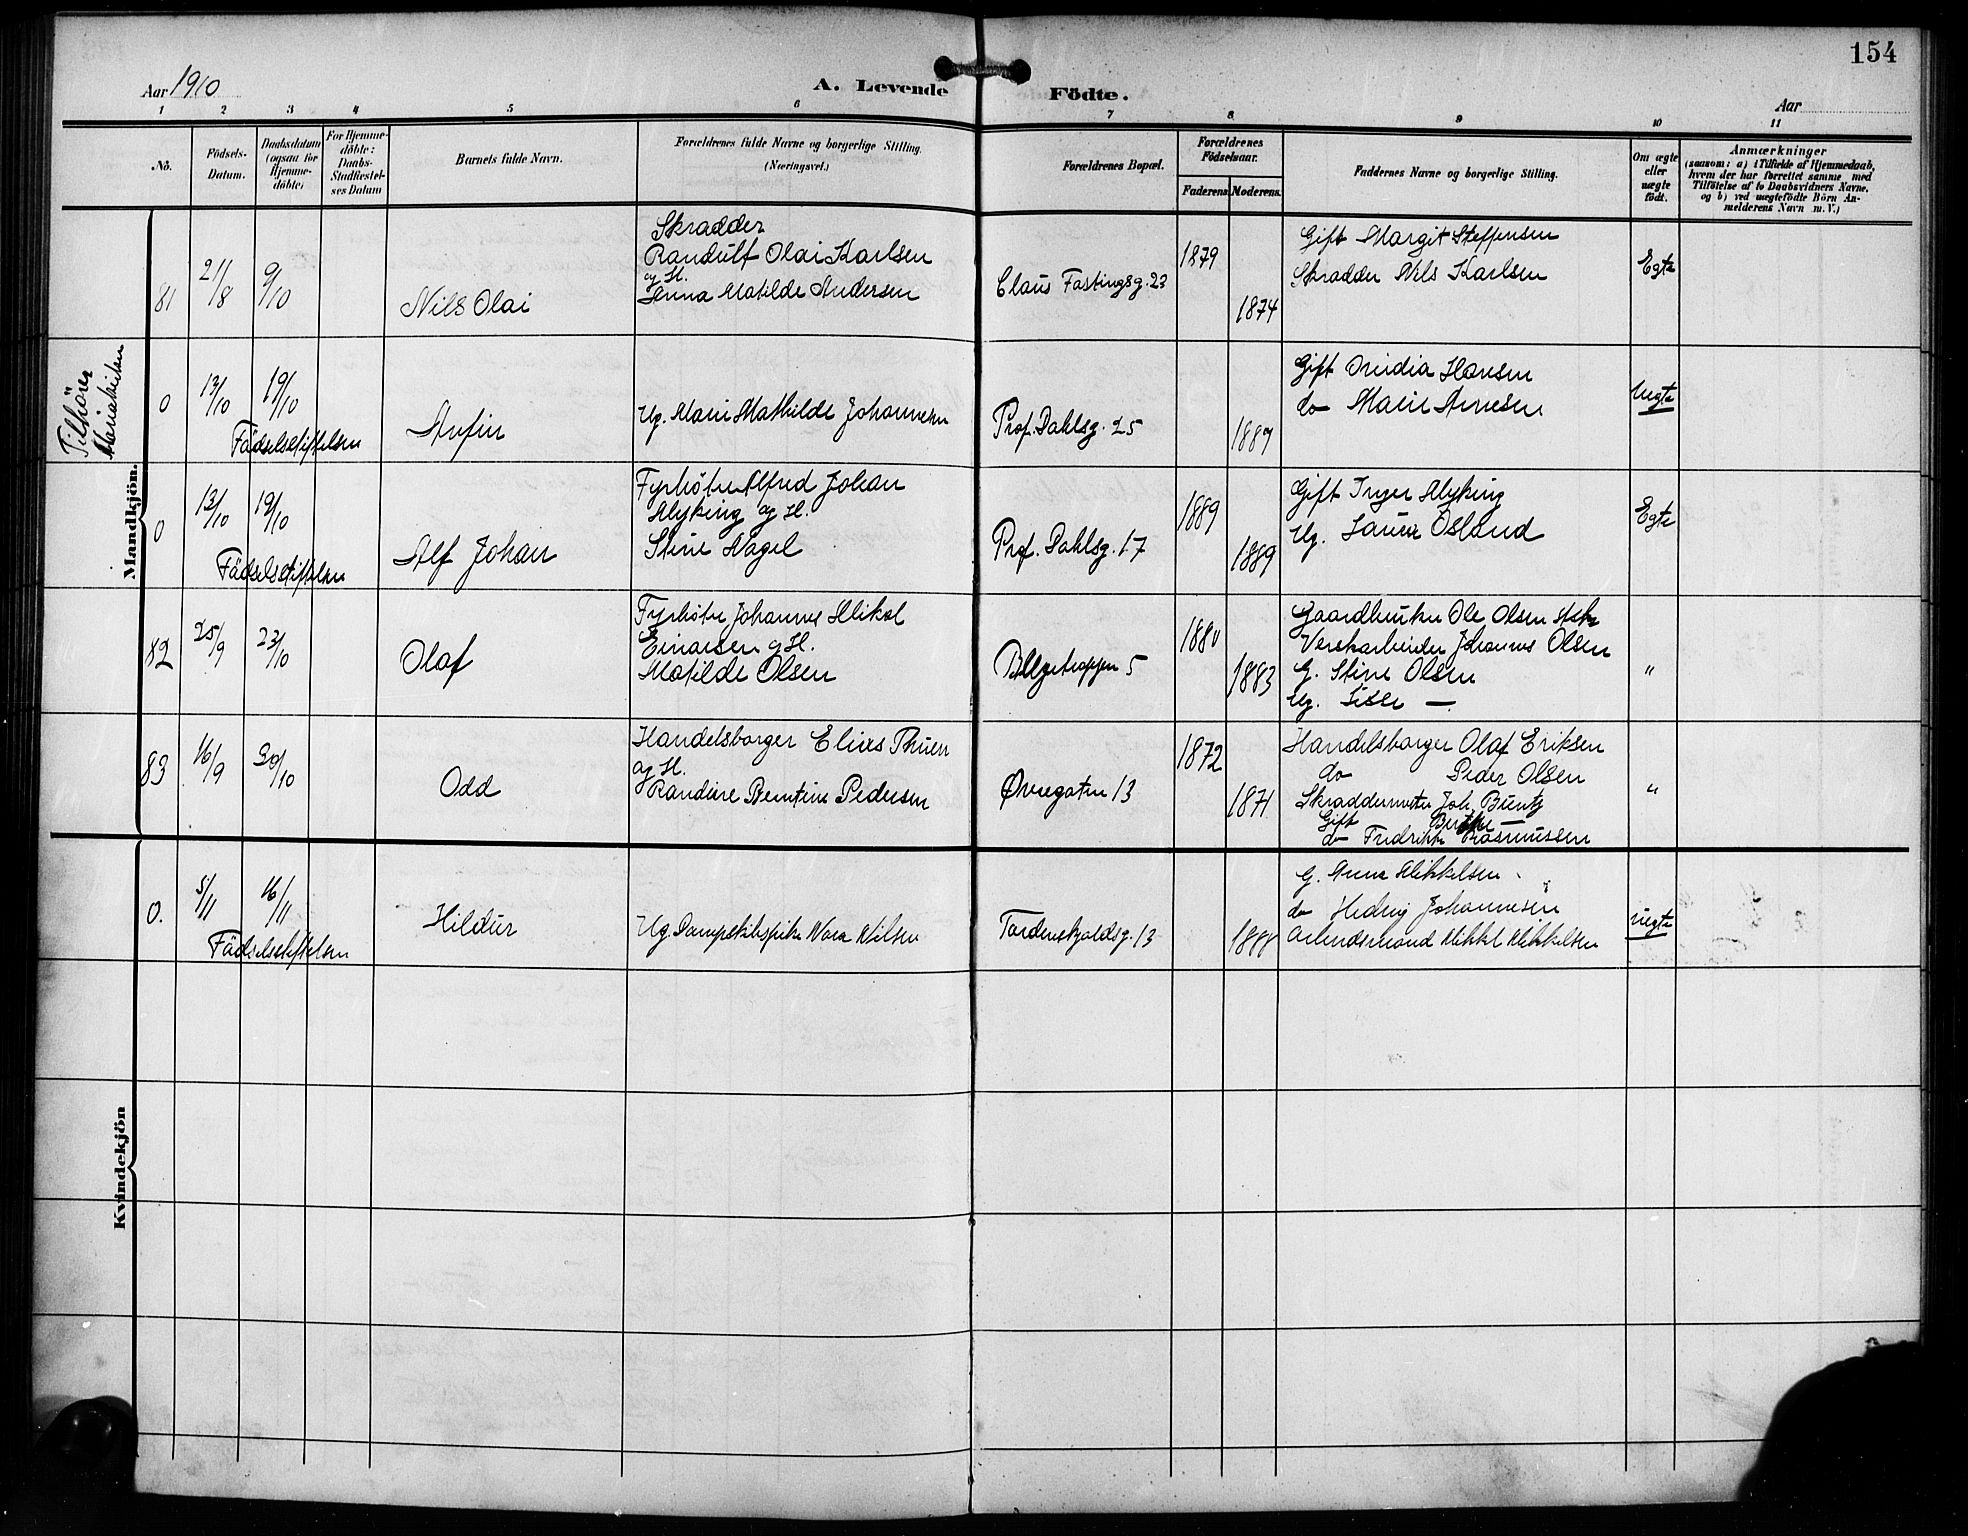 154
Aar 1910
A. Levende Födte.
Aar
1 2 3 4 5 6 7 8 9 10 11
No.
Födsels-Datum.
Daabsdatum (ogsaa for Hjemme-döbte)
For Hjemme-döbte: Daabs-Stadfæstel-ses Datum
Barnets fulde Navn.
Forældrenes fulde Navne og borgerlige Stilling.
(Næringsvei.)
Forældrenes Bopæl.
Forældrenes Födselsaar.
Faderens Moderens.
Faddernes Navne og borgerlige Stilling.
Om ægte eller uægte födt.
Anmærkninger
(saasom: a) i Tilfælde af Hjemmedaab,
hvem der har forrettet samme med
Tilföielse af to Daabsvidners Navne,
og b) ved uægtefödte Börn An-
melderens Navn m. V.)
Mandkjön.
81 21/8 9/10
Nils Olai
Skradder
Randulf Olai Karlsen
og H.
Anna Matilde Andersen
Claus Fastingsg. 23
1879
1874
Gift Margit Steffensen
Skradder Nils Karlsen
Egte
Tilhörer
Mariakirken
0 13/10 19/10
Födselsstiftelsen
Arfin
Ug. Marie Mathilde Johannesen
Prof. Dahlsg. 25
1889
Gift Ovidia Hansen
do Marie Arnesen
Uegte
0 13/10 19/10
Födselsstiftelsen
Alf Johan
Fyrböter Alfred Johan
Myking og H.
Stine Nagel
Prof. Dahlsg. 17
1889
1889
Gift Inger Myking
Ug. Laura Osland
Egte
82 25/9 23/10
Olaf
Fyrböter Johannes Mikal
Einarsen og H.
Matilde Olsen
5
1880
1883
Gaardbruker Ole Olsen Ask
Verksarbeider Johannes Olsen
G. Stine Olsen
Ug. Lisse —
"
83 16/9 30/10
Odd
Handelsborger Elias Thuen
og H.
Randine Bentine Pedersen
Øvregaten 13
1872
1871
Handelsborger Olaf Eriksen
do Peder Olsen
Skraddermester Joh. Buntz
Gift Berthe —
do Fredrikke Rasmussen
"
Kvindekjön
0. 5/11 16/11
Födselsstiftelsen
Hildur
Ug. Dampskibspike Nora Nilsen
Tordenskjoldsg. 13
1888
G. Anna Mikkelsen
do Hedvig Johannesen
Arbeidsmand Mikkel Mikkelsen
uegte